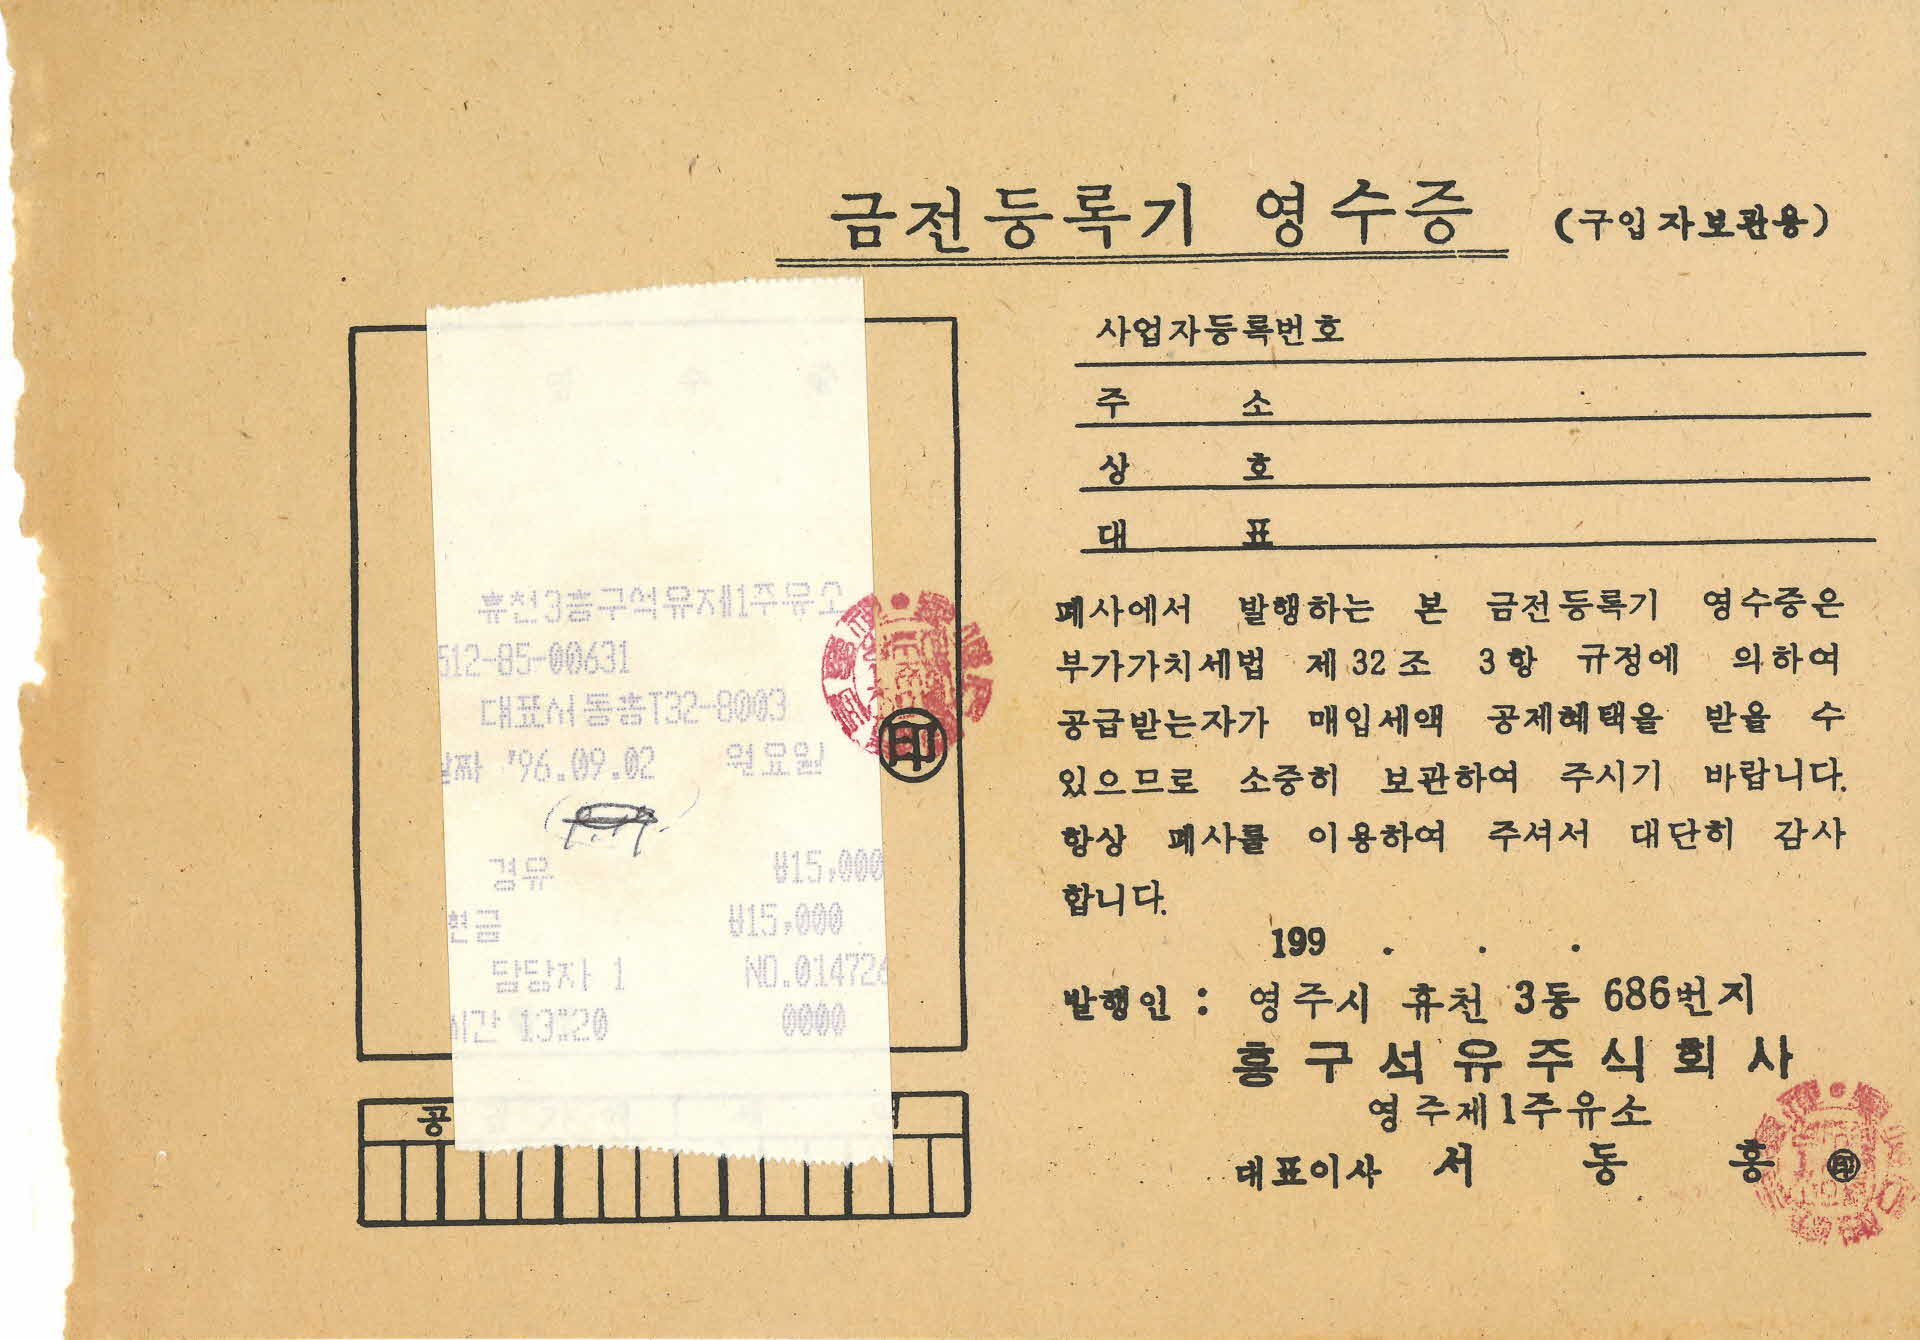 금전등록기 영수증 (구입자보관용)
휴천3흥구석유제1주유소
512-85-00631
대표서동흥T32-8003
날짜 '96.09.02 월요일
경유 ₩15,000
현금 ₩15,000
담당자 1 NO.014726
시간 13:20 0000
印
공
사업자등록번호
주 소
상 호
대 표
폐사에서 발행하는 본 금전등록기 영수증은
부가가치세법 제32조 3항 규정에 의하여
공급받는자가 매입세액 공제혜택을 받을 수
있으므로 소중히 보관하여 주시기 바랍니다.
항상 폐사를 이용하여 주셔서 대단히 감사
합니다.
199 . . .
발행인 : 영주시 휴천 3동 686번지
흥구석유주식회사
영주제1주유소
대표이사 서 동 흥 印